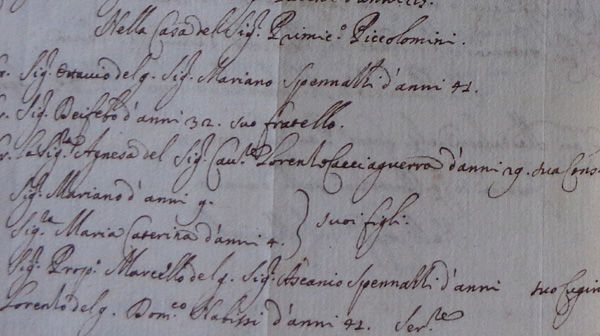 Nella Casa del Sig.r Primic.o Piccolomini.
Sig.r Ottavio del q. Sig.r Mariano Spennazzi d'anni 41.
Sig.r Deifebo d'anni 32. suo fratello.
la Sig.ra Agnesa del Sig.r Cau.re Lorenzo Cacciaguerra d'anni 29. sua Cons.
Sig.r Mariano d'anni 9.
Sig.ra Maria Caterina d'anni 4. } suoi figli.
Sig.r Prop.o Marcello del q. Sig.r Ascanio Spennazzi d'anni suo Cugin
Lorenzo del q. Dom.co d'anni 42. Ser.re